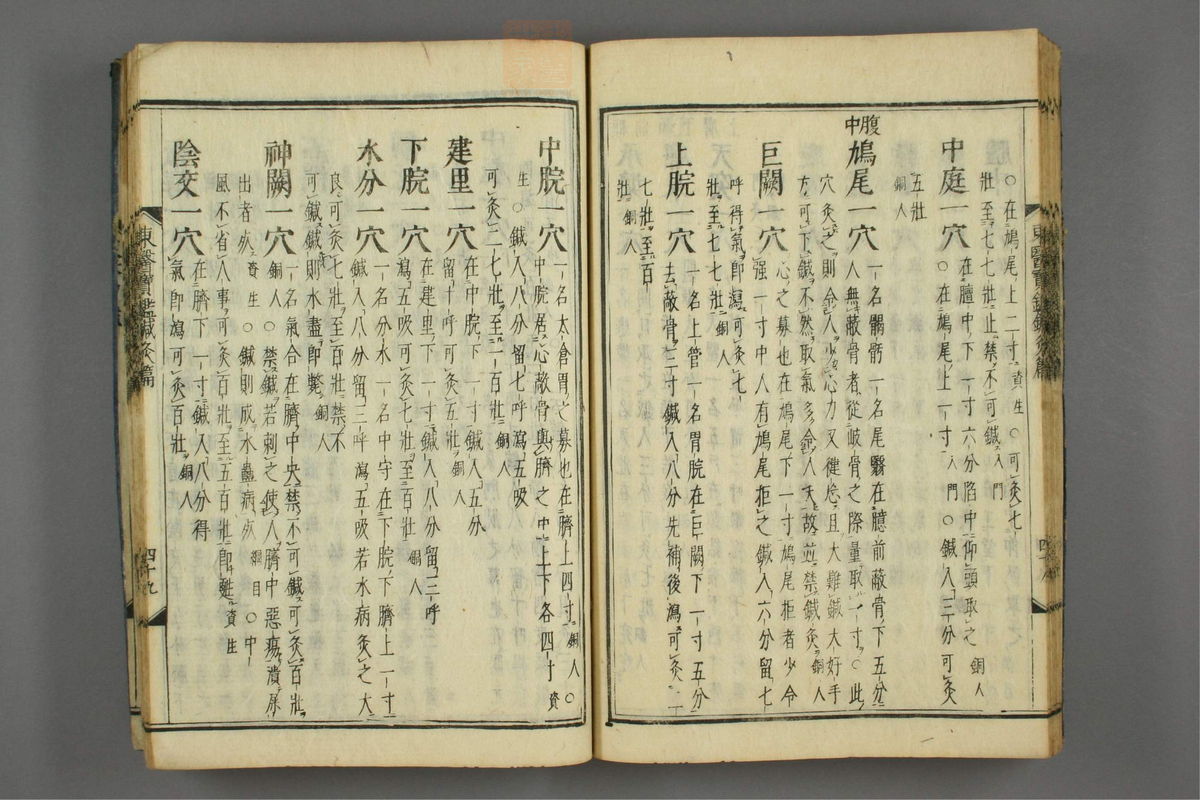 ○在鳩尾上二寸資生○可灸七
壯至七七壯止禁不可鍼入門
中庭一穴在膻中下一寸六分陷中仰頭取之銅人
○在鳩尾上一寸入門○鍼入三分可灸
五壯
銅人
腹中
鳩尾一穴一名𩩲骬一名尾翳在臆前蔽骨下五分
人無蔽骨者從岐骨之際量取一寸○此
穴灸之則令人少心力又健忘且大難鍼大好手
方可下鍼不然取氣多令人夭故並禁鍼灸銅人
巨闕一穴心之募也在鳩尾下一寸鳩尾拒者少令
强一寸中人有鳩尾拒之鍼入六分留七
呼得氣卽瀉可灸七
壯至七七壯銅人
上脘一穴一名上管一名胃脘在巨闕下一寸五分
去蔽骨三寸鍼入八分先補後瀉可灸二
七壯至百
壯銅人
東醫寶鑑鍼灸篇
中脘一穴一名太倉胃之募也在臍上四寸銅人○
中脘居心蔽骨與臍之中上下各四寸資
生○鍼入八分留七呼瀉五吸
可灸二七壯至一百壯銅人
建里一穴在中脘下一寸鍼入五分
留十呼可灸五壯銅人
下脘一穴在建里下一寸鍼入八分留三呼
瀉五吸可灸七壯至百壯銅人
水分一穴一名分水一名中守在下脘下臍上一寸
鍼入八分留三呼瀉五吸若水病灸之大
良可灸七壯至百壯禁不
可鍼鍼則水盡卽斃銅人
神闕一穴一名氣合在臍中央禁不可鍼可灸百壯
銅人○禁鍼若刺之使人臍中惡瘍潰屎
出者死資生○鍼則成水蠱病死綱目○中
風不省人事可灸百壯至五百壯卽甦資生
陰交一穴在臍下一寸鍼入八分得
氣卽瀉可灸百壯銅人
東醫寶鑑鍼灸篇
四十九